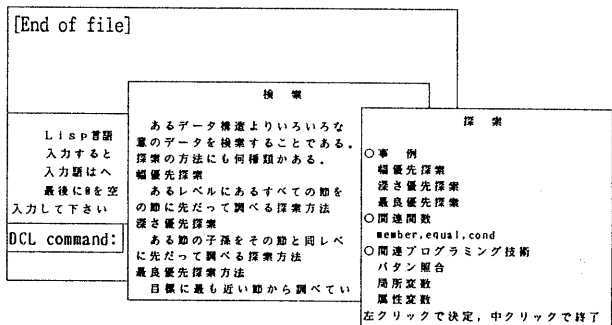 [End of file]
Lisp言語
入力すると
入力語はへ
最後に@を空
入力して下さい
DCL command:
検 索
あるデータ構造よりいろいろな
意のデータを検索することである。
探索の方法にも何種類かある。
幅優先探索
あるレベルにあるすべての節を
の節に先だって調べる探索方法
深さ優先探索
ある節の子孫をその節と同レベ
に先だって調べる探索方法
最良優先探索方法
目標に最も近い節から調べてい
探 索
○事 例
幅優先探索
深さ優先探索
最良優先探索
○関連関数
member,equal,cond
○関連プログラミング技術
パタン照合
局所変数
属性変数
左クリックで決定,中クリックで終了